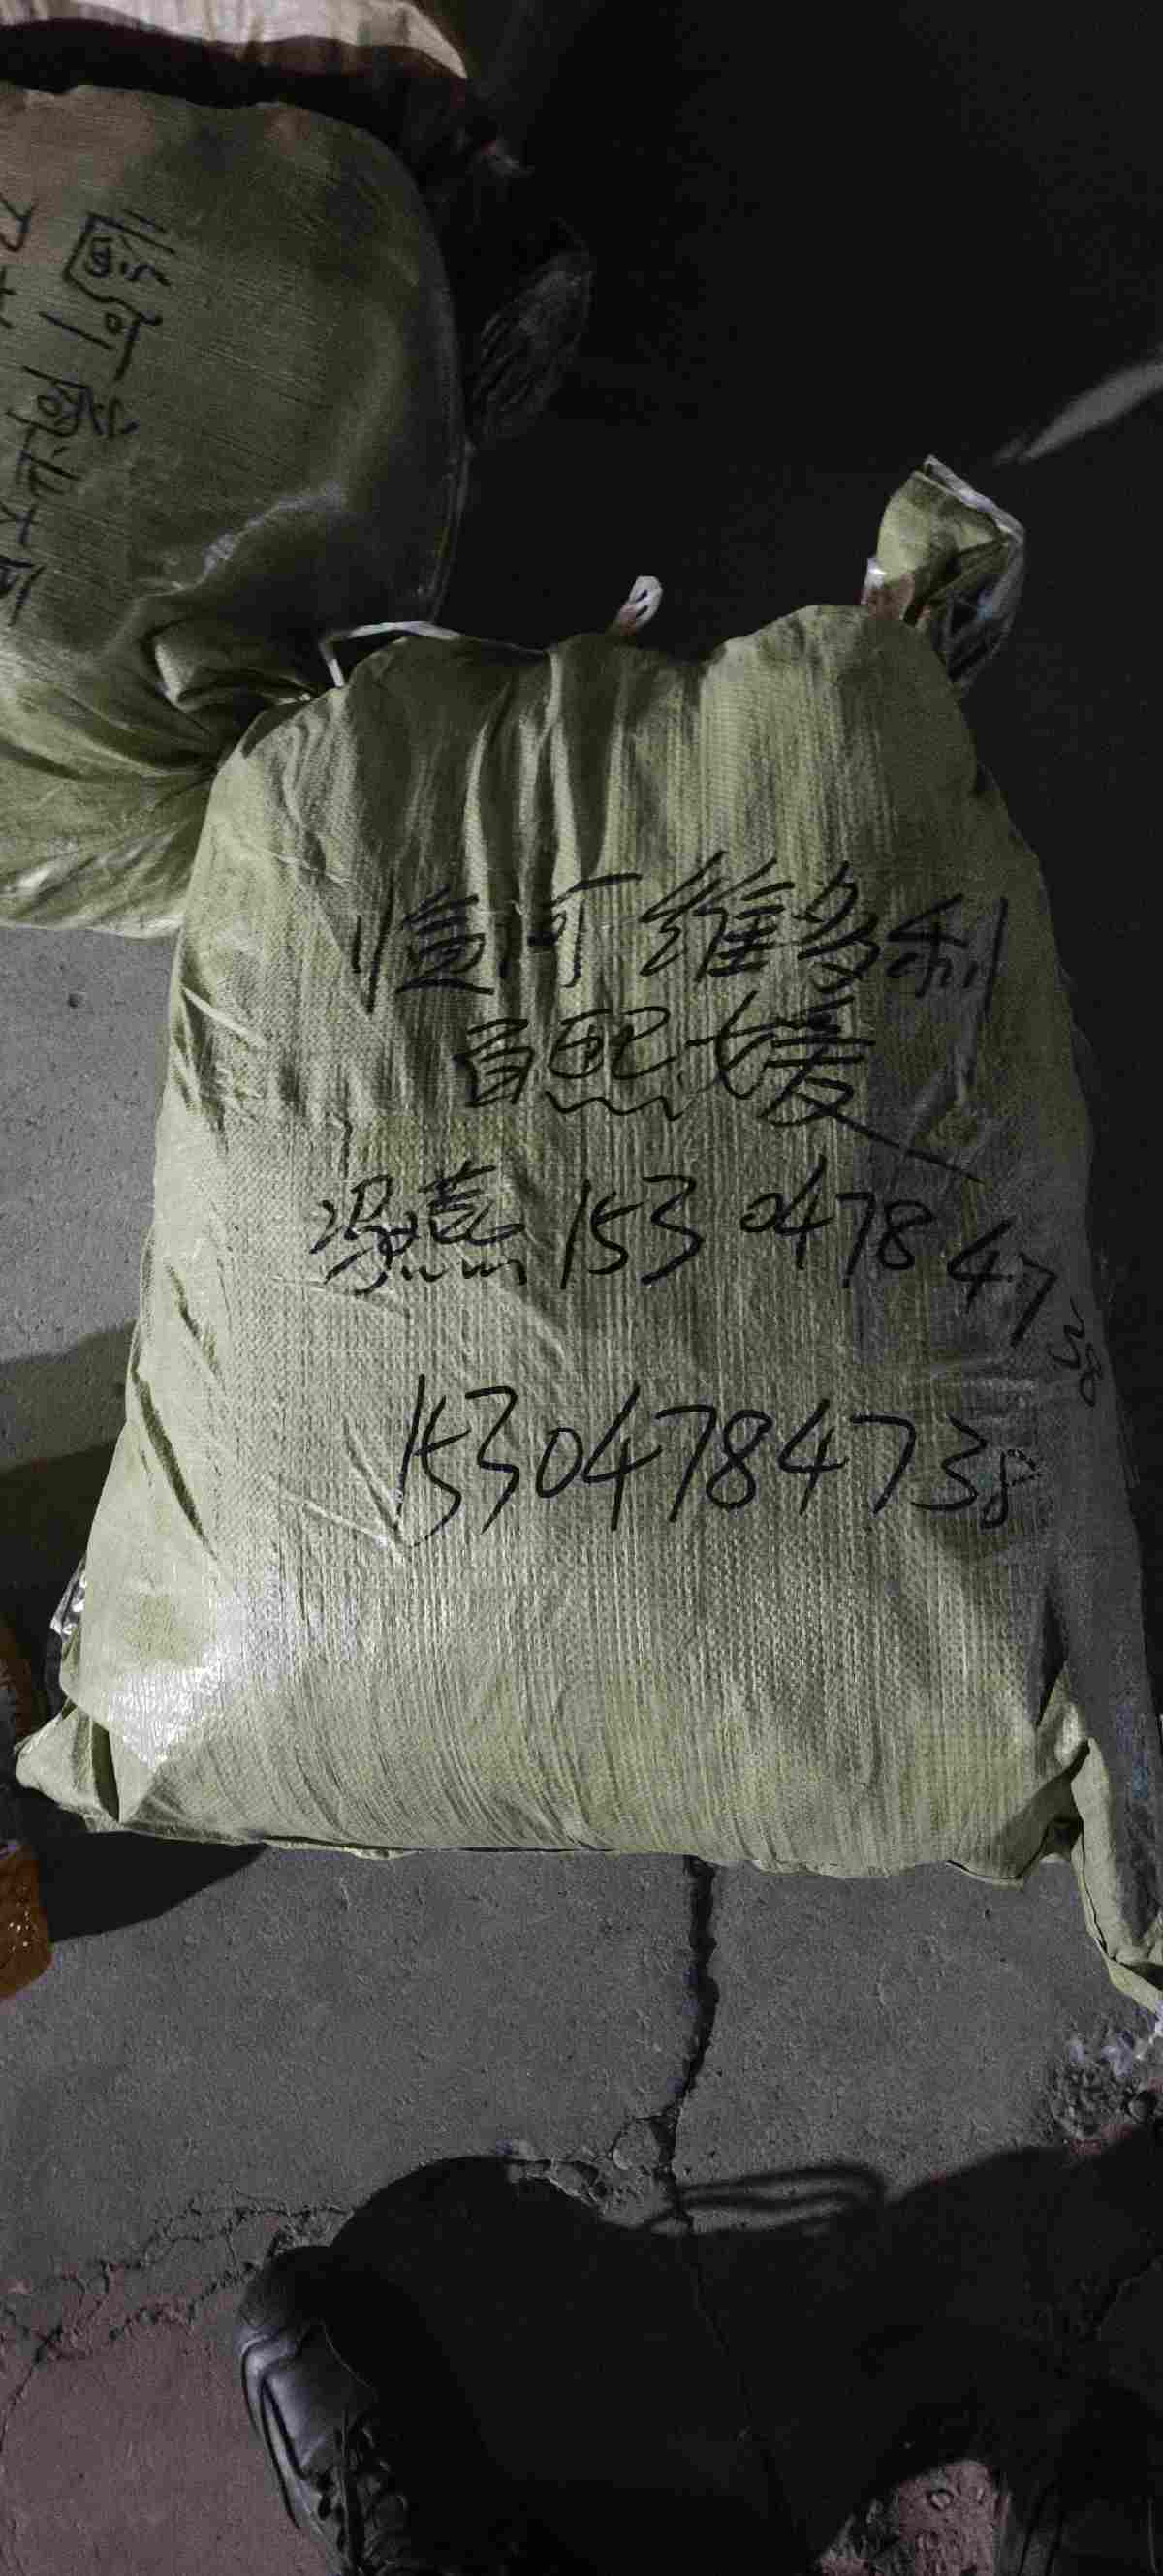 临河
临河维多利
百熙媛
燕 15304784738
15304784738